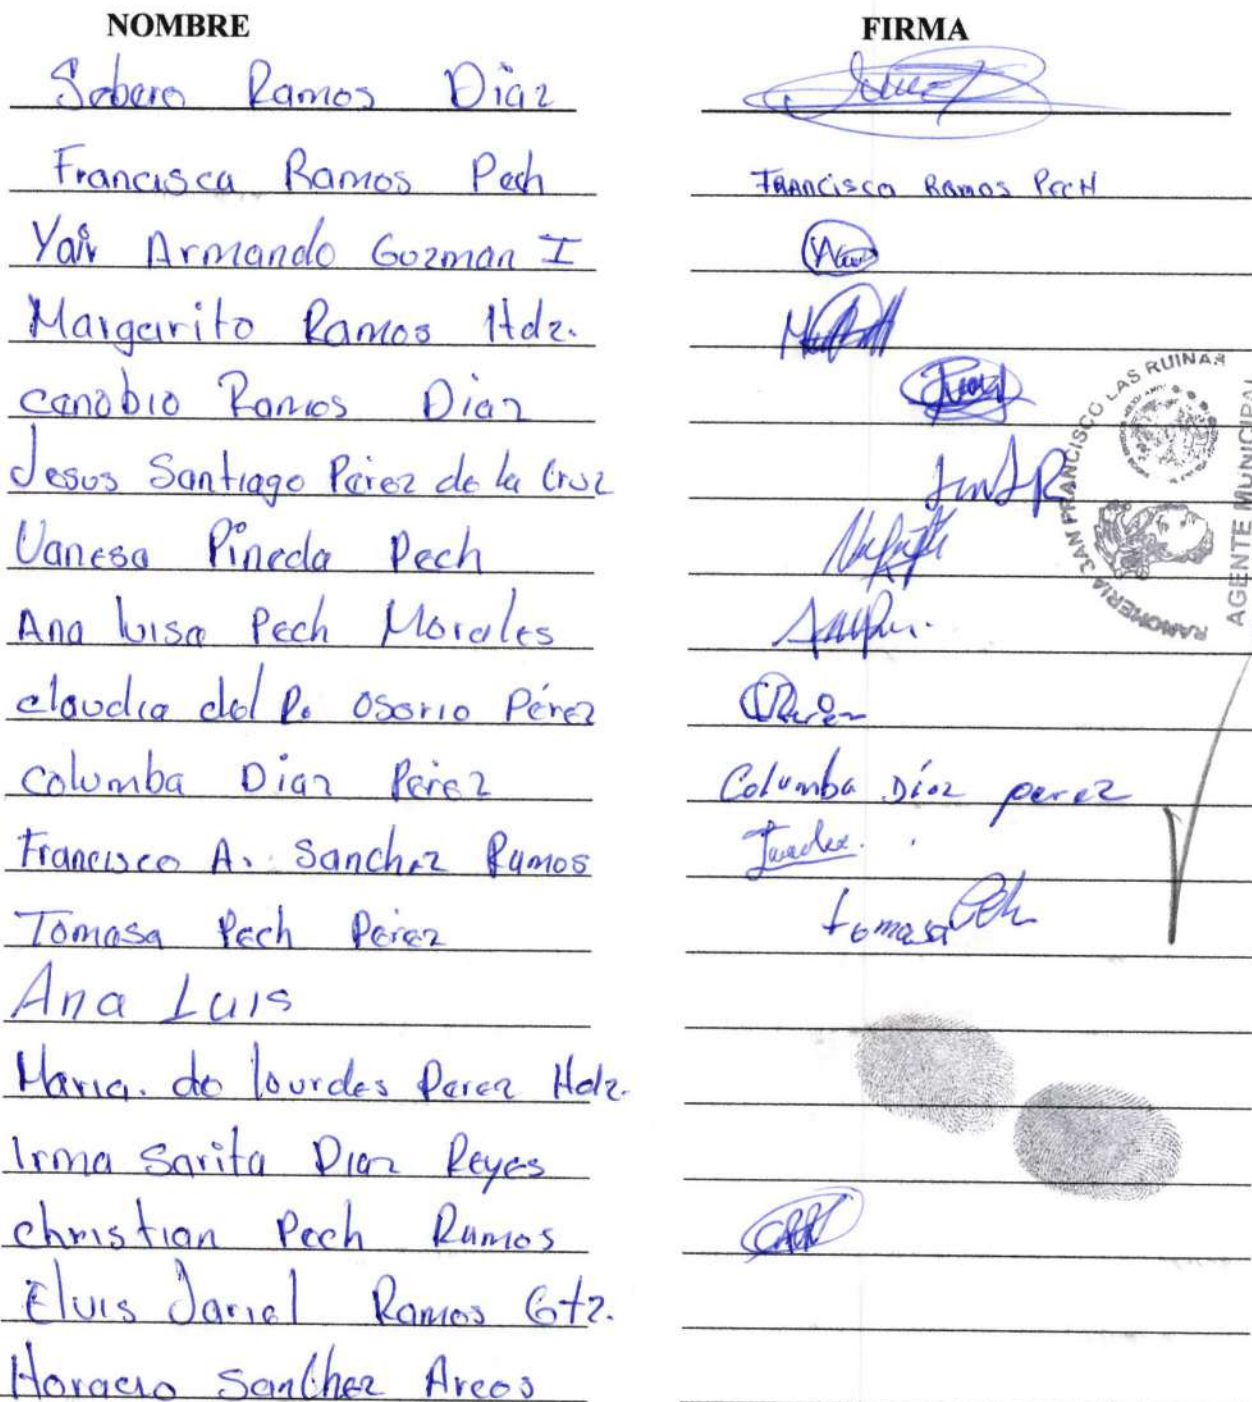 NOMBRE FIRMA
Sobero Ramos Diaz
Francisca Ramos Pech FRANCISCO RAMOS PECH
Yair Armando Guzman I
Margarito Ramos Hdz.
canobio Ramos Diaz
Jesus Santiago Pérez de la Cruz
Vanesa Pineda Pech
Ana luisa Pech Morales
claudia del P. Osorio Pérez
columba Diaz Pérez Columba Díaz perez
Francisco A. Sanchez Ramos
Tomasa Pech Pérez tomasa
Ana Luis
Maria. de lourdes Perez Hdz.
Irma Sarita Diaz Reyes
christian Pech Ramos
Elvis Jariel Ramos Gtz.
Horacio Sanchez Arcos
RANCHERIA SAN FRANCISCO LAS RUINAS
AGENTE MUNICIPAL